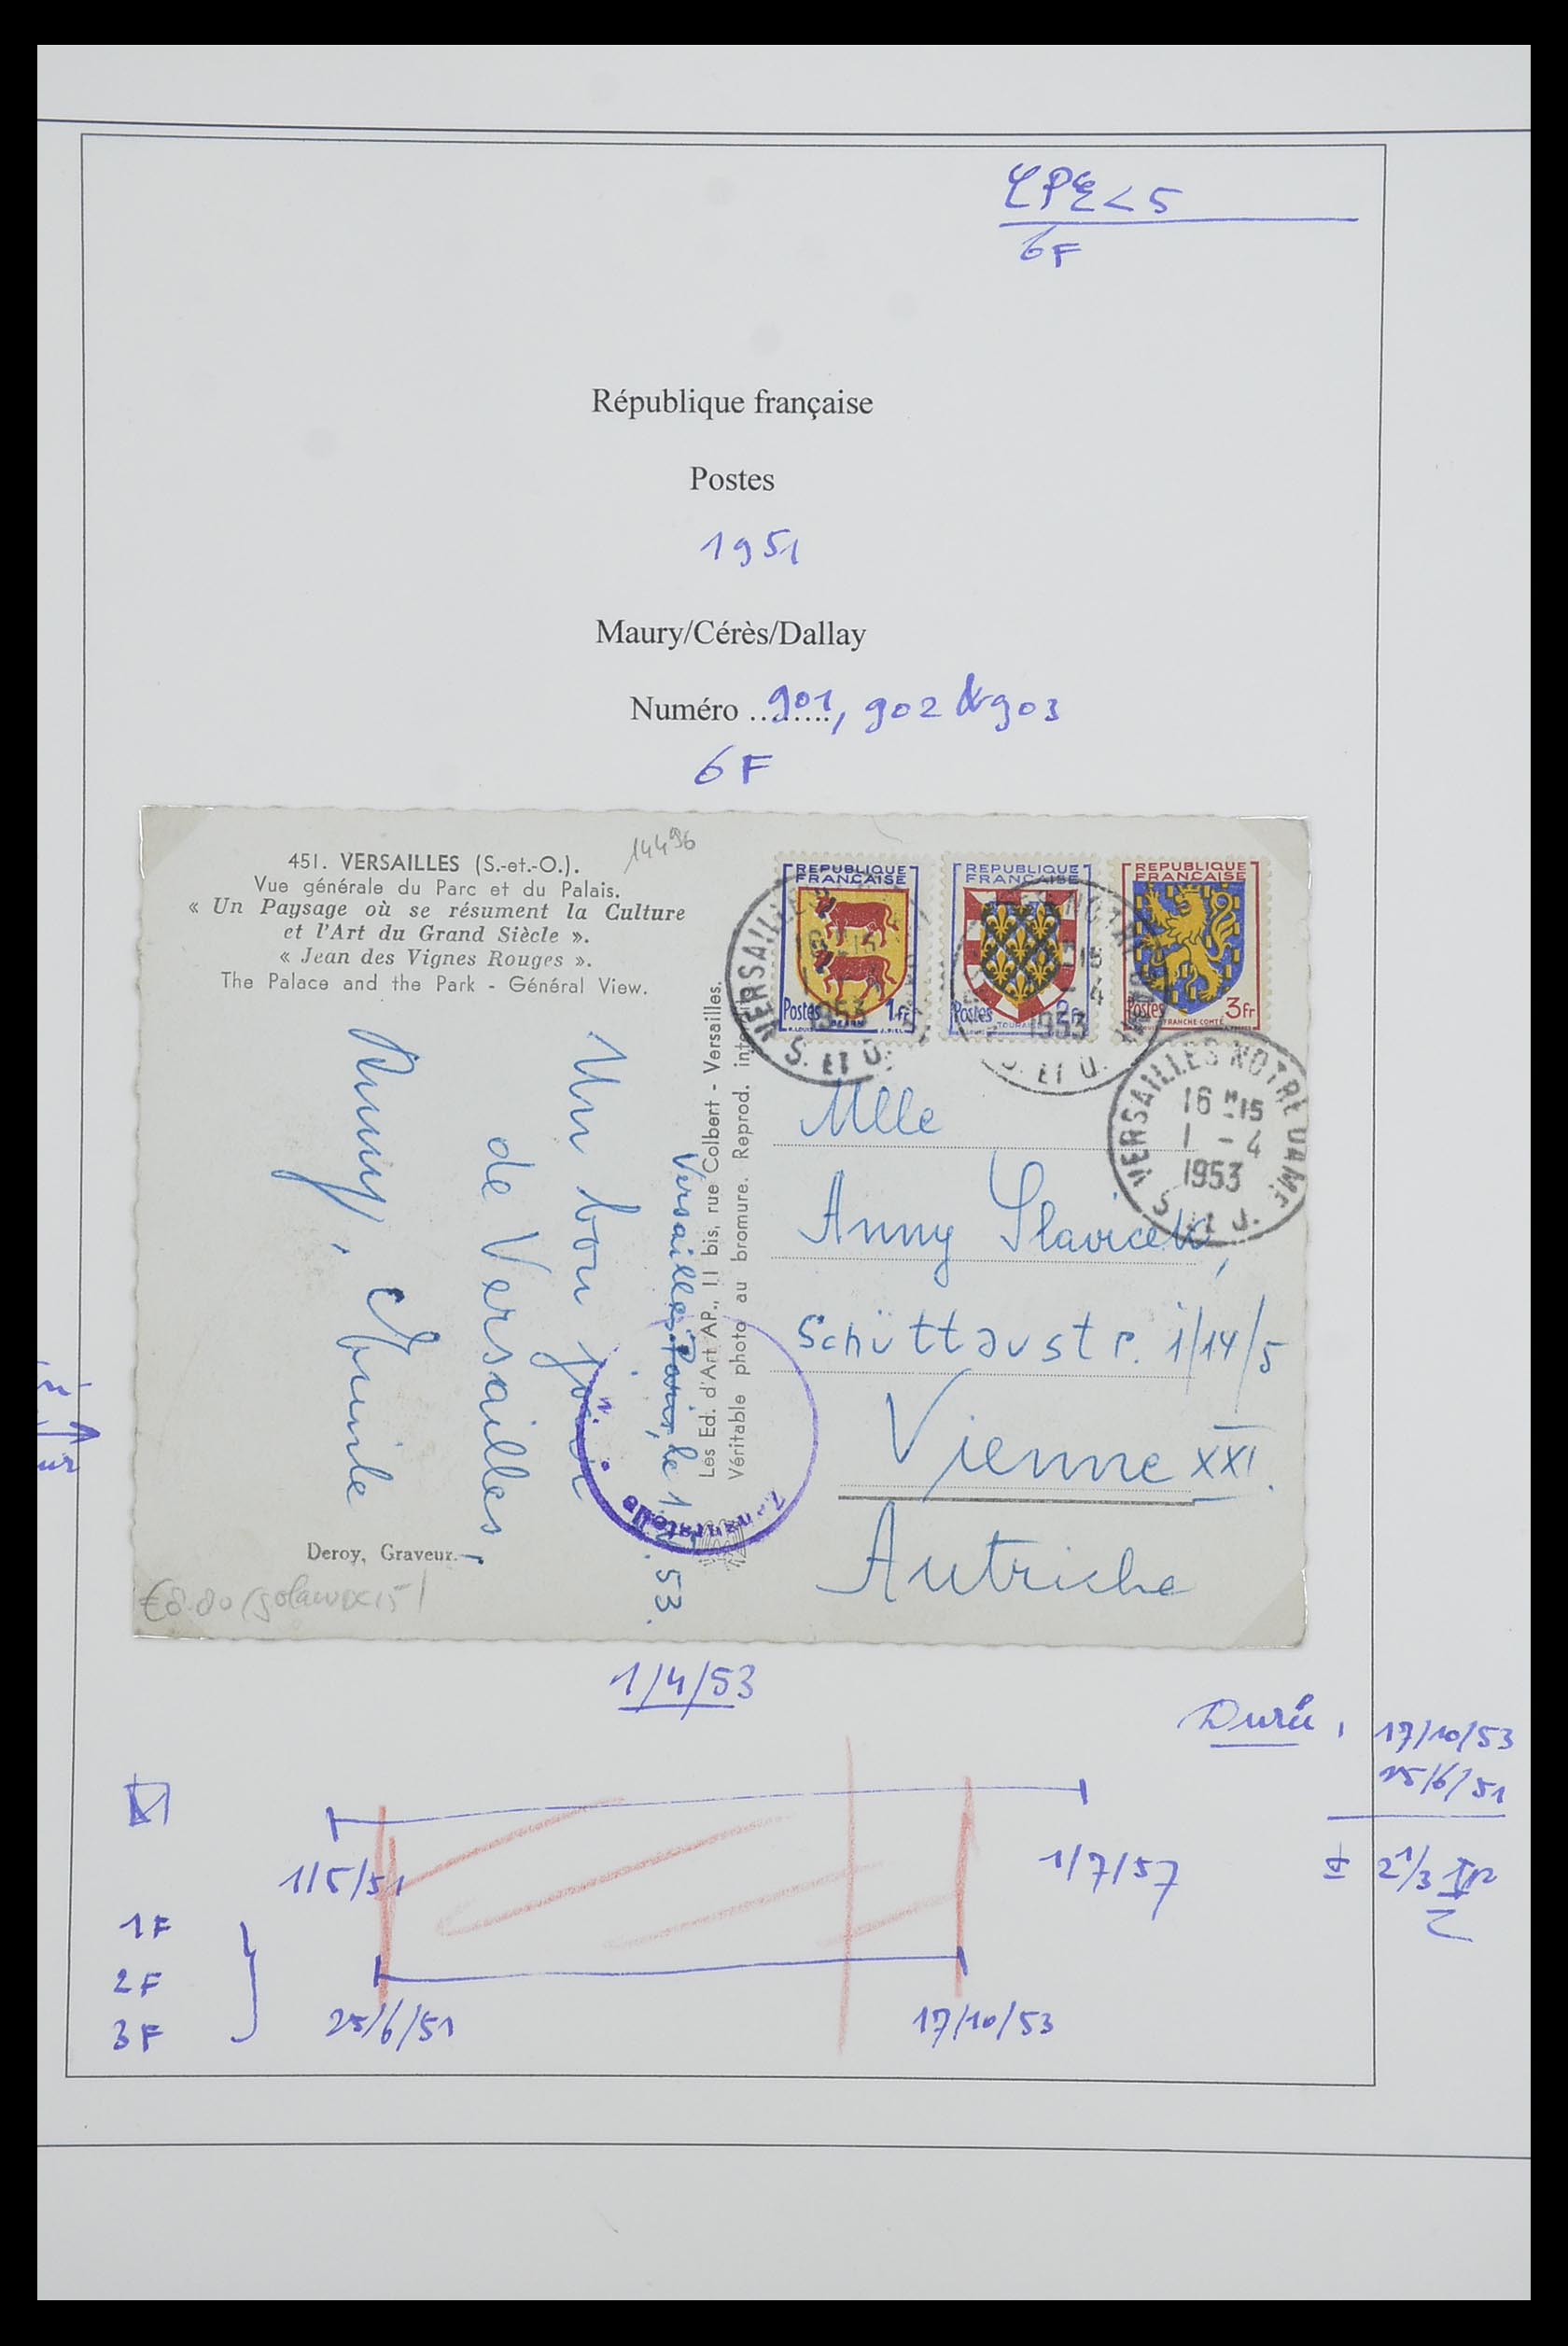 CPE < 5
6F
République française
Postes
1951
Maury/Cérès/Dallay
Numéro ........ 901, 902 & 903
6F
451. VERSAILLES (S.-et.-O.).
Vue générale du Parc et du Palais.
« Un Paysage où se résument la Culture
et l'Art du Grand Siècle ».
« Jean des Vignes Rouges ».
The Palace and the Park - Général View.
14496
REPUBLIQUE
FRANCAISE
Postes 1fr
REPUBLIQUE
FRANCAISE
Postes 2fr
TOURAINE
REPUBLIQUE
FRANCAISE
Postes 3fr
FRANCHE-COMTÉ
VERSAILLES NOTRE DAME
16 H 15
1 - 4
1953
S. ET O.
Les Ed. d'Art AP., 11 bis, rue Colbert - Versailles.
Véritable photo au bromure. Reprod. interdite
Versailles, Paris, le 1. .53.
Un bon jour
de Versailles,
Zensurstelle
Mlle
Anny Slavicek,
Schüttaustr. 1/14/5
Vienne XXI.
Autriche
Deroy, Graveur.
1/4/53
Durée : 17/10/53
25/6/51
± 2 1/3
1/5/51
1/7/57
1F
2F
3F
25/6/51
17/10/53